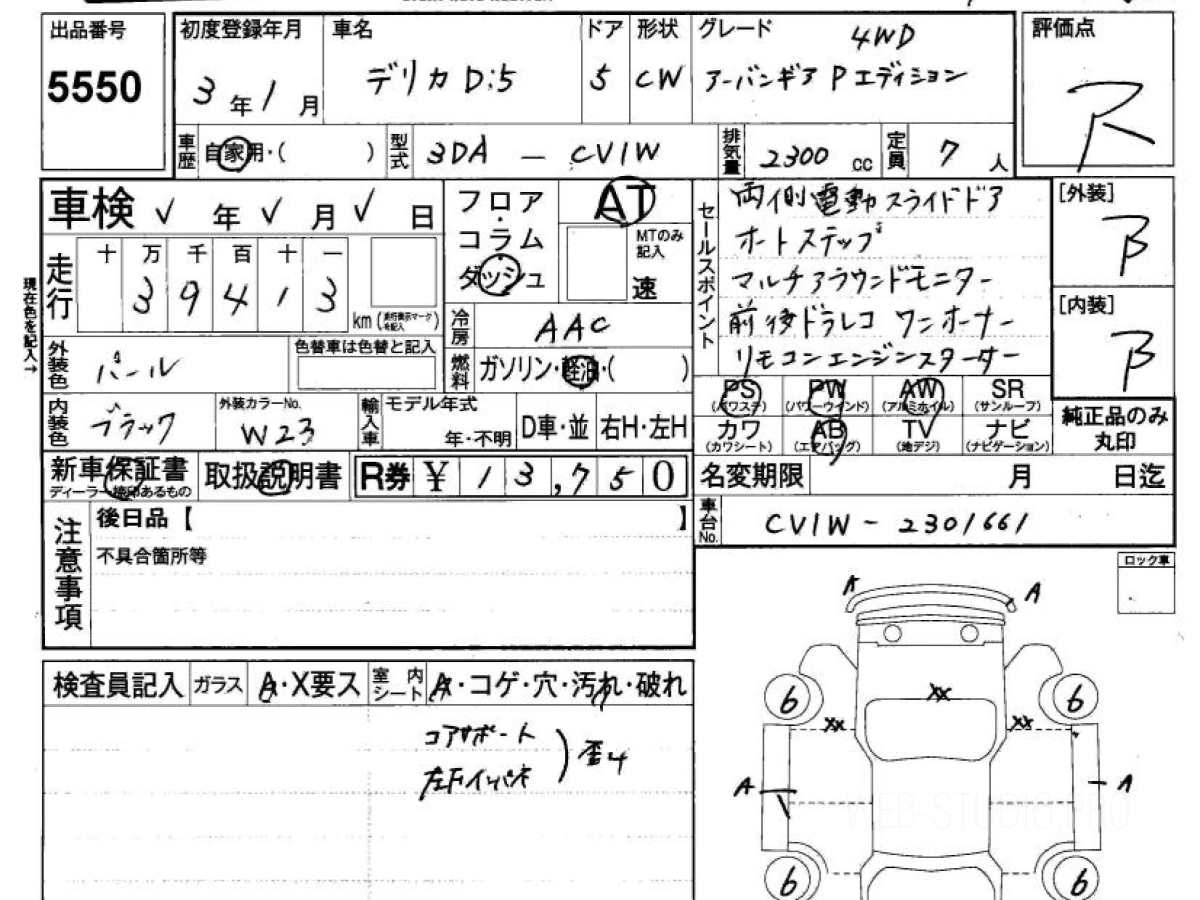 出品番号 初度登録年月 車名 ドア 形状 グレード 4WD 評価点
5550 3年1月 デリカ D:5 5 CW アーバンギア Pエディション R
車歴 自家用・( ) 型式 3DA - CV1W 排気量 2300 cc 定員 7人
車検 √年√月√日
走行 十 万 千 百 十 一
3 9 4 1 3 km (走行表示マークを記入)
現在色を記入→
外装色 パール 色替車は色替と記入
内装色 ブラック 外装カラーNo. W23 輸入車 モデル年式 年・不明 D車・並 右H・左H
フロア・コラム ダッシュ
AT
MTのみ記入 速
冷房 AAC
燃料 ガソリン・軽油・( )
セールスポイント
両側電動スライドドア
オートステップ
マルチアラウンドモニター
前後ドラレコ ワンオーナー
リモコンエンジンスターター
[外装] B
[内装] B
PS (パワステ) PW (パワーウインド) AW (アルミホイル) SR (サンルーフ)
カワ (カワシート) AB (エアバッグ) TV (地デジ) ナビ (ナビゲーション)
純正品のみ丸印
新車保証書 ディーラー捺印あるもの 取扱説明書 R券 ¥ 13,750
名変期限 月 日迄
車台No. CV1W - 2301661
注意事項
後日品【 】
不具合箇所等
ロック車
検査員記入 ガラス A・X要ス 室内シート A・コゲ・穴・汚れ・破れ
コアサポート
左右インパネ
) 歪4
A A
XX
6 6
XX XX
A A
6 6
WEB-STUDIO.PRO